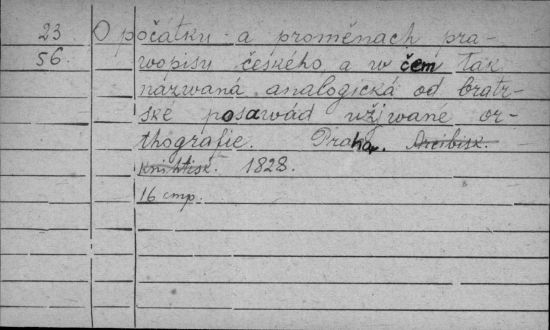 23. O počátku a proměnach pra-
56. wopisu českého a w čem tak
nazwaná analogická od bratr-
ské posawád užjwané or-
thografie. Praha. Arcibisk.
knihtisk. 1828.
16 стр.